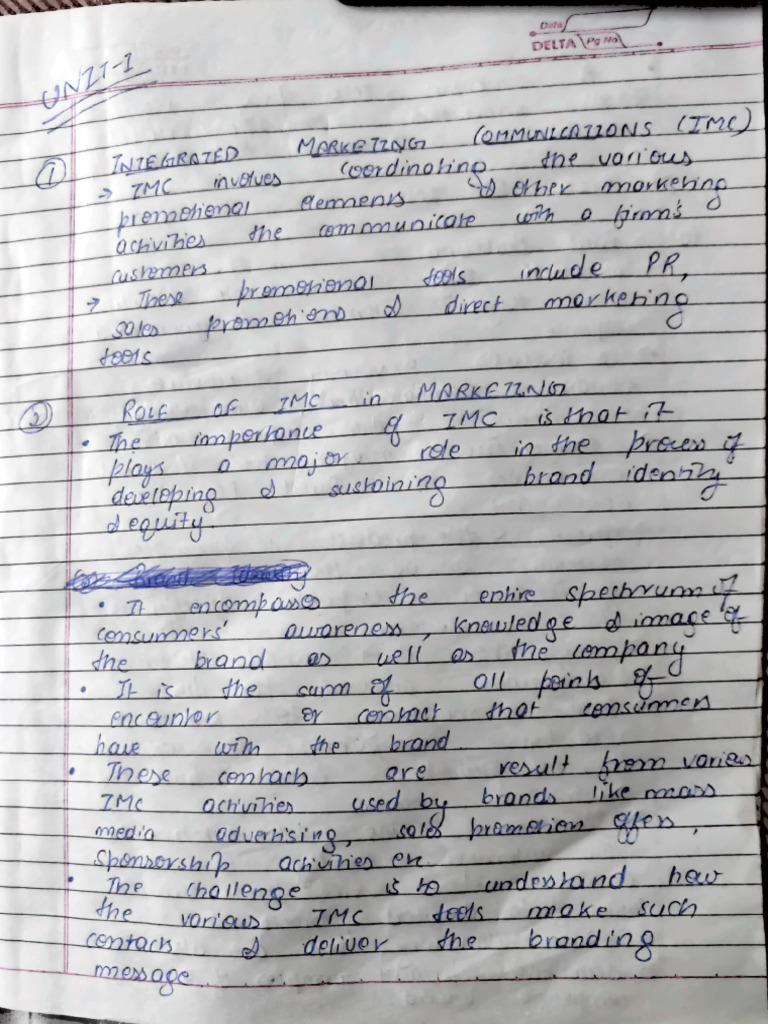 Date
DELTA Pg No
UNIT-I
① INTEGRATED MARKETING COMMUNICATIONS (IMC)
→ IMC involves coordinating the various
promotional elements & other marketing
activities the communicate with a firm's
customers.
→ These promotional tools include PR,
sales promotions & direct marketing
tools
② ROLE OF IMC in MARKETING
• The importance of IMC is that it
plays a major role in the process of
developing & sustaining brand identity
& equity.
• It encompasses the entire spectrum of
consumers' awareness, knowledge & image of
the brand as well as the company
• It is the sum of all points of
encounter or contact that consumers
have with the brand.
• These contacts are result from various
IMC activities used by brands like mass
media advertising, sales promotion offers,
sponsorship activities etc.
• The challenge is to understand how
the various IMC tools make such
contacts & deliver the branding
message